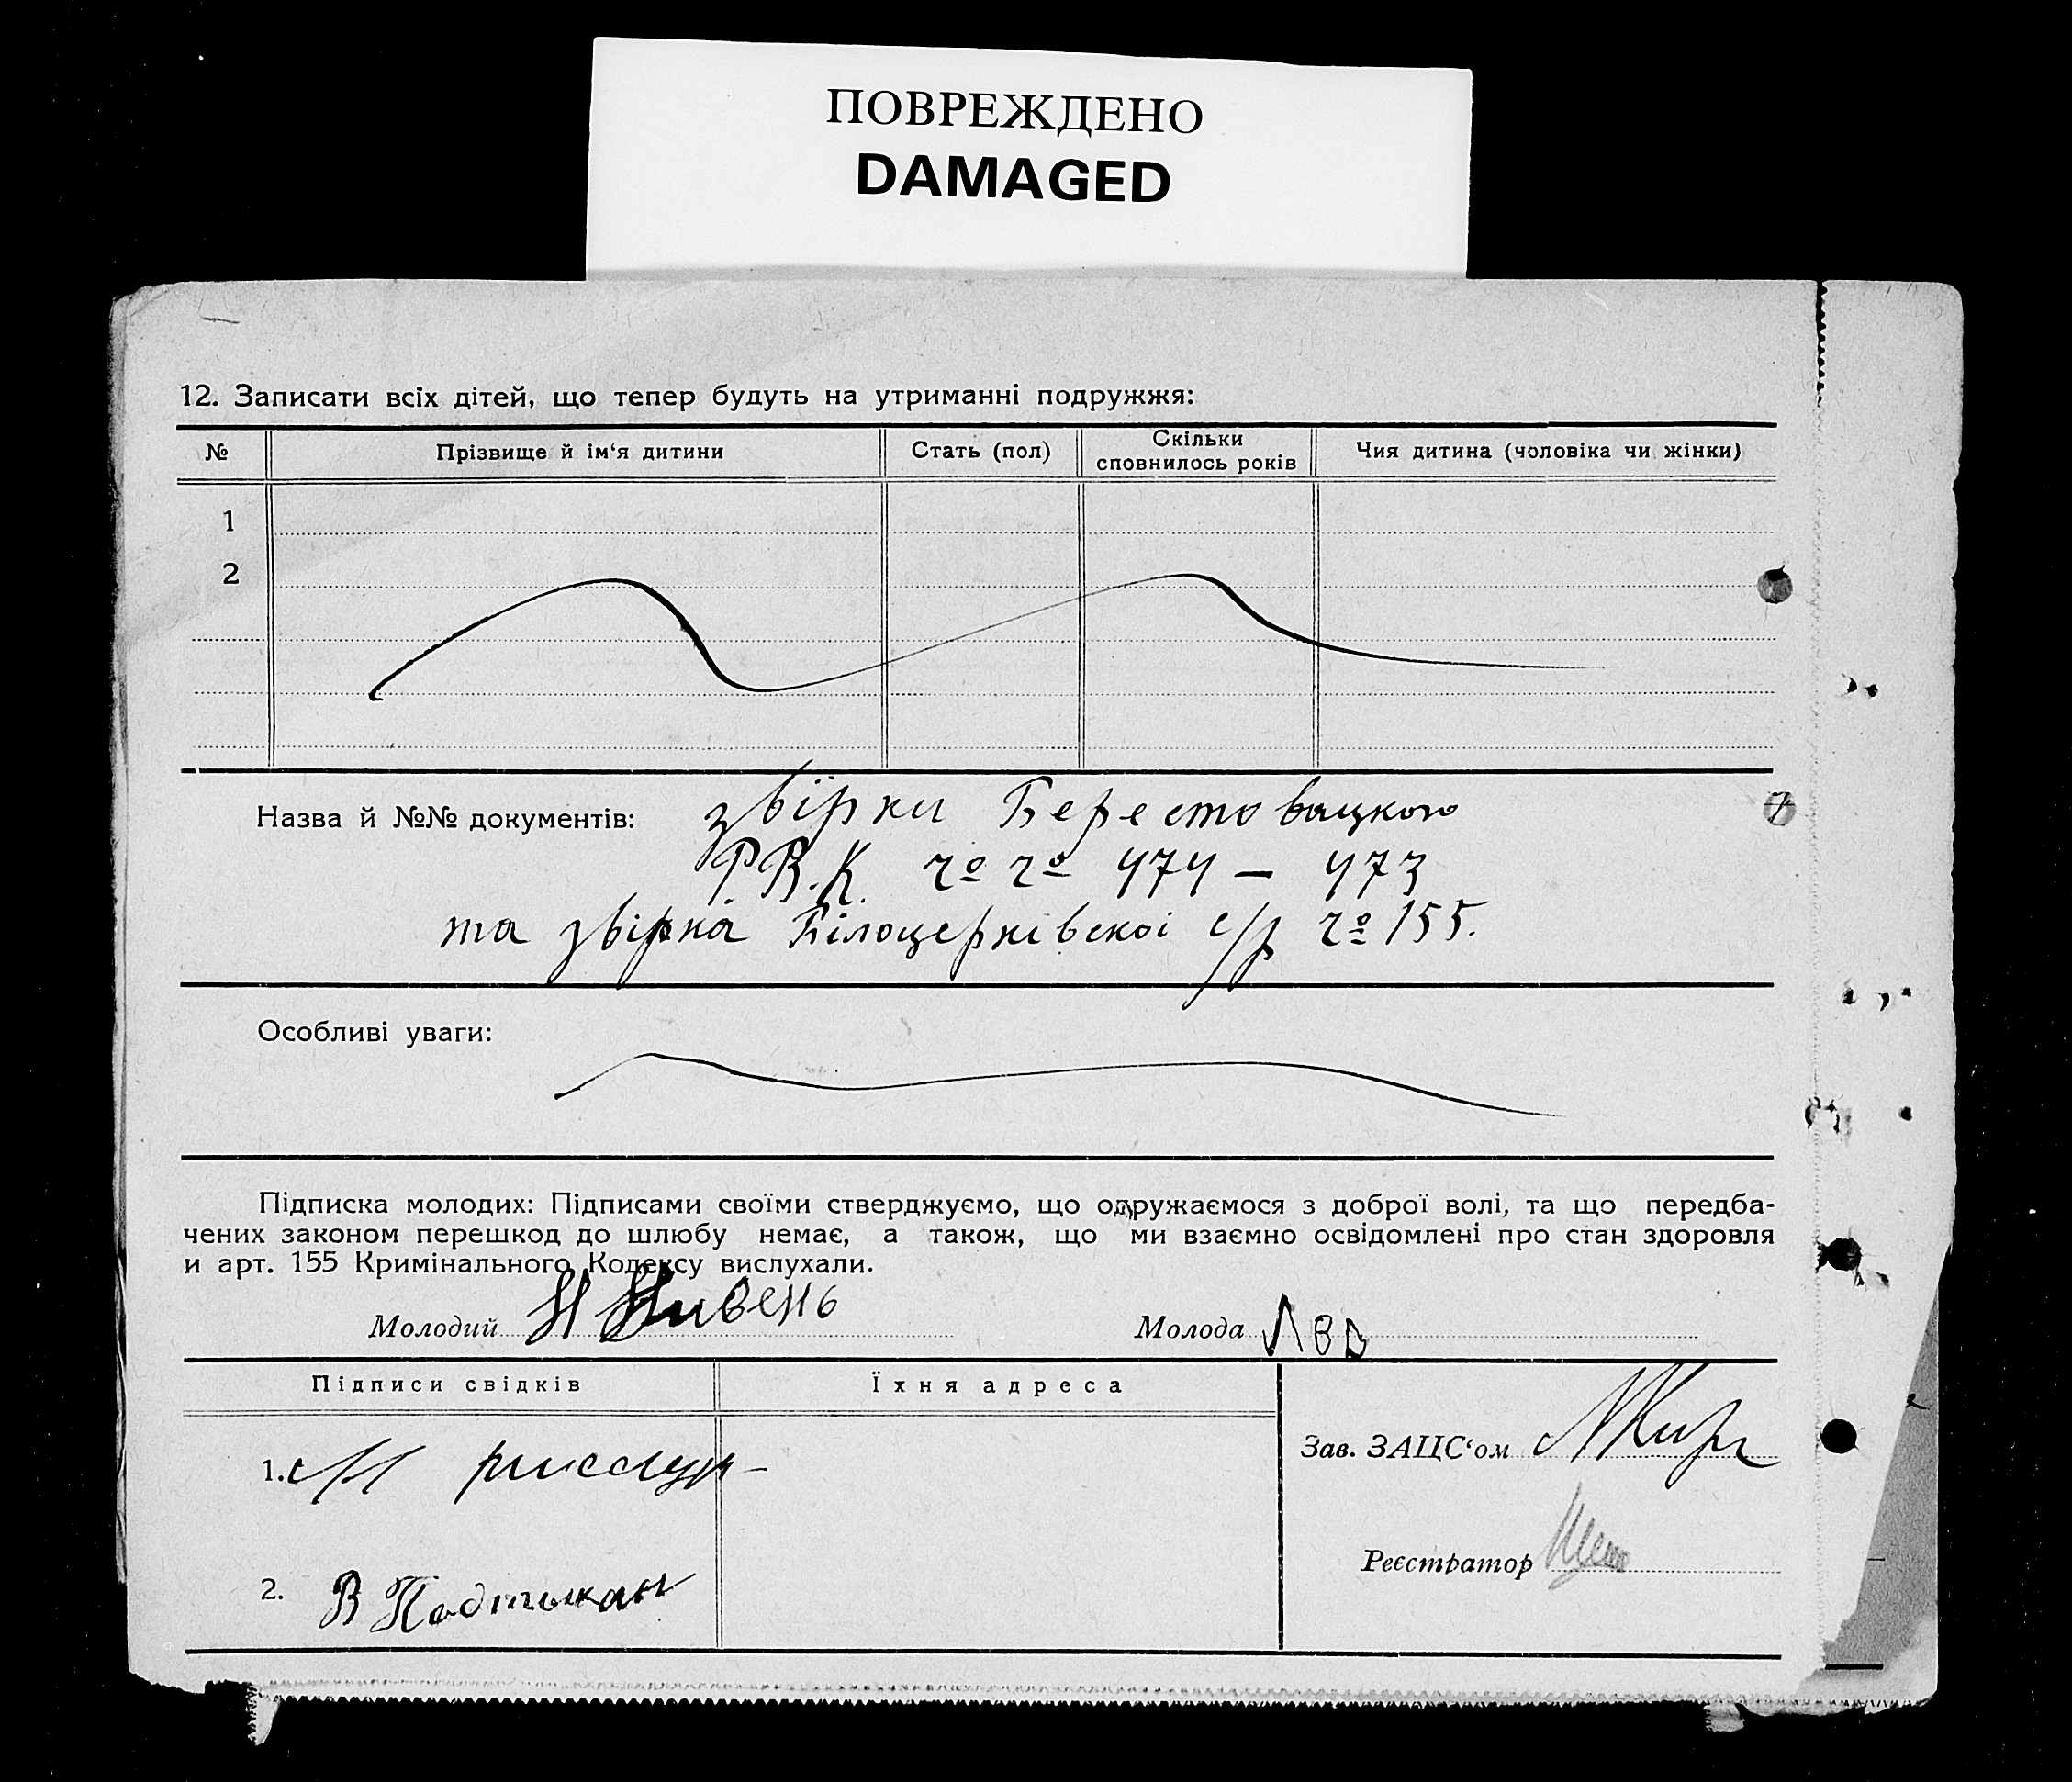 ПОВРЕЖДЕНО
DAMAGED
12. Записати всіх дітей, що тепер будуть на утриманні подружжя:
№ Прізвище й ім‘я дитини Стать (пол) Скільки сповнилось років Чия дитина (чоловіка чи жінки)
1
2
Назва й №№ документів: звірки Берестовацкого
Р.В.К. чо чо 474 — 473
та звірка Білоцерківскоі с/р чо 155.
7
Особливі уваги:
Підписка молодих: Підписами своїми стверджуємо, що одружаємося з доброї волі, та що передба-
чених законом перешкод до шлюбу немає, а також, що ми взаємно освідомлені про стан здоровля
и арт. 155 Кримінального Кодексу вислухали.
Молодий Н Нивень Молода Лев
Підписи свідків Їхня адреса
Зав. ЗАЦС‘ом
1. М
Реєстратор
2. В